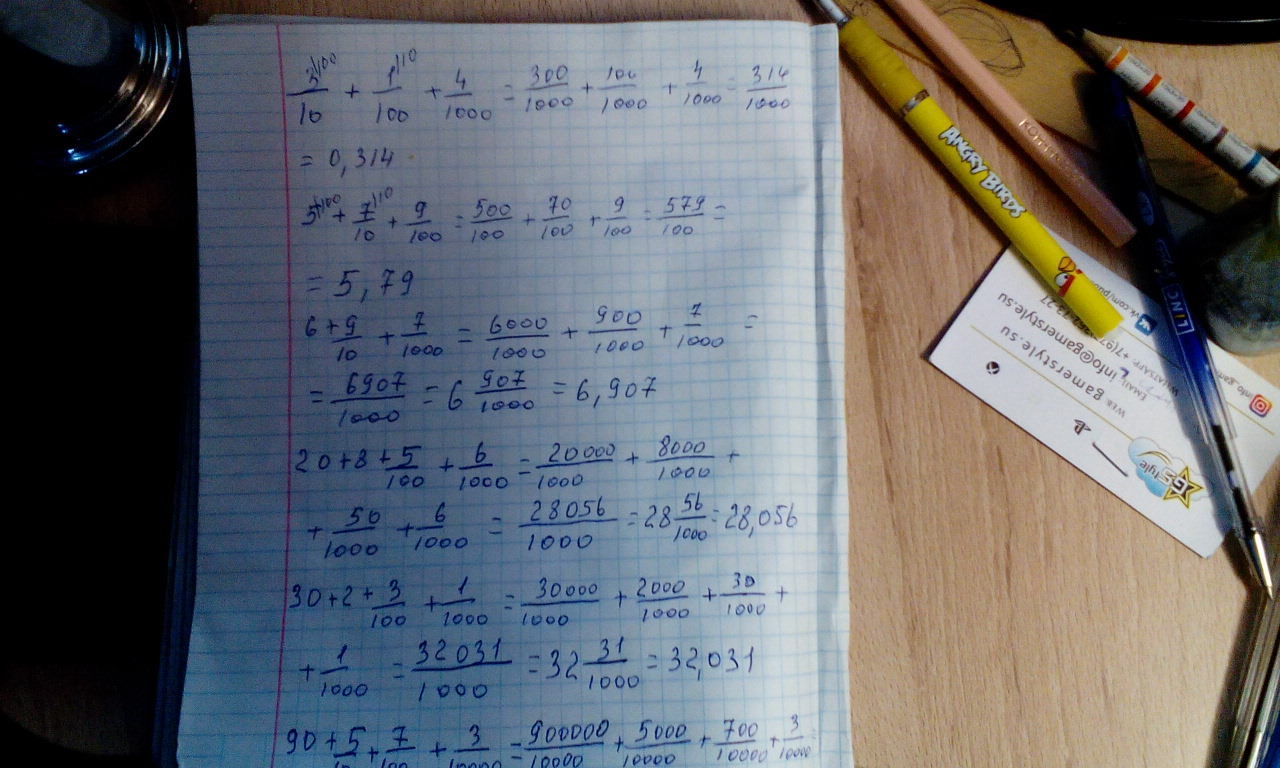 3/10 + 1/100 + 4/1000 = 300/1000 + 100/1000 + 4/1000 = 314/1000
= 0,314
5 + 7/10 + 9/100 = 500/100 + 70/100 + 9/100 = 579/100 =
= 5,79
6 + 9/10 + 7/1000 = 6000/1000 + 900/1000 + 7/1000 =
= 6907/1000 = 6 907/1000 = 6,907
20 + 8 + 5/100 + 6/1000 = 20000/1000 + 8000/1000 +
+ 50/1000 + 6/1000 = 28056/1000 = 28 56/1000 = 28,056
30 + 2 + 3/100 + 1/1000 = 30000/1000 + 2000/1000 + 30/1000 +
+ 1/1000 = 32031/1000 = 32 31/1000 = 32,031
90 + 5/10 + 7/100 + 3/10000 = 900000/10000 + 5000/10000 + 700/10000 + 3/10000 =
ANGRY BIRDS
LINC
WEB: gamerstyle.su
EMAIL: info@gamerstyle.su
GStyle